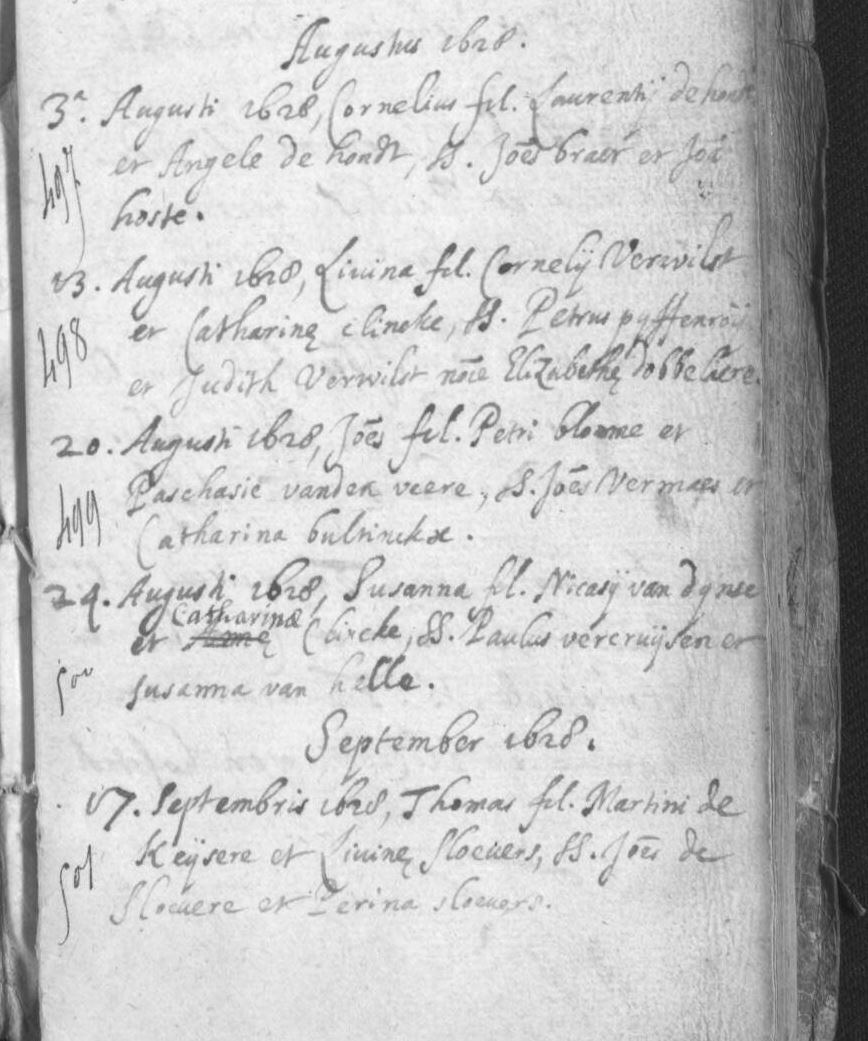 Augustus 1628.
3ª. Augusti 1628, Cornelius fil. Laurentij de hondt
497
et Angele de hondt, SS. Joēs braer et Joā
hoste.
13. Augusti 1628, Liuina fil. Cornelij Verwilst
498
et Catharinę clincke, SS. Petrus
et Judith Verwilst noīe Elizabethę dobbelaere.
20. Augusti 1628, Joēs fil. Petri blomme et
499
Paschasie vanden veere, SS. Joēs Vermaes et
Catharina bultinckx.
24. Augusti 1628, Susanna fil. Nicasij van dynse
Catharinæ
et Clincke, SS. Paulus vercruijsen et
500
susanna van helle.
September 1628.
17. Septembris 1628, Thomas fil. Martini de
501
Keijsere et Liuinę Sloeuers, SS. Joēs de
Sloeuere et Perina sloeuers.